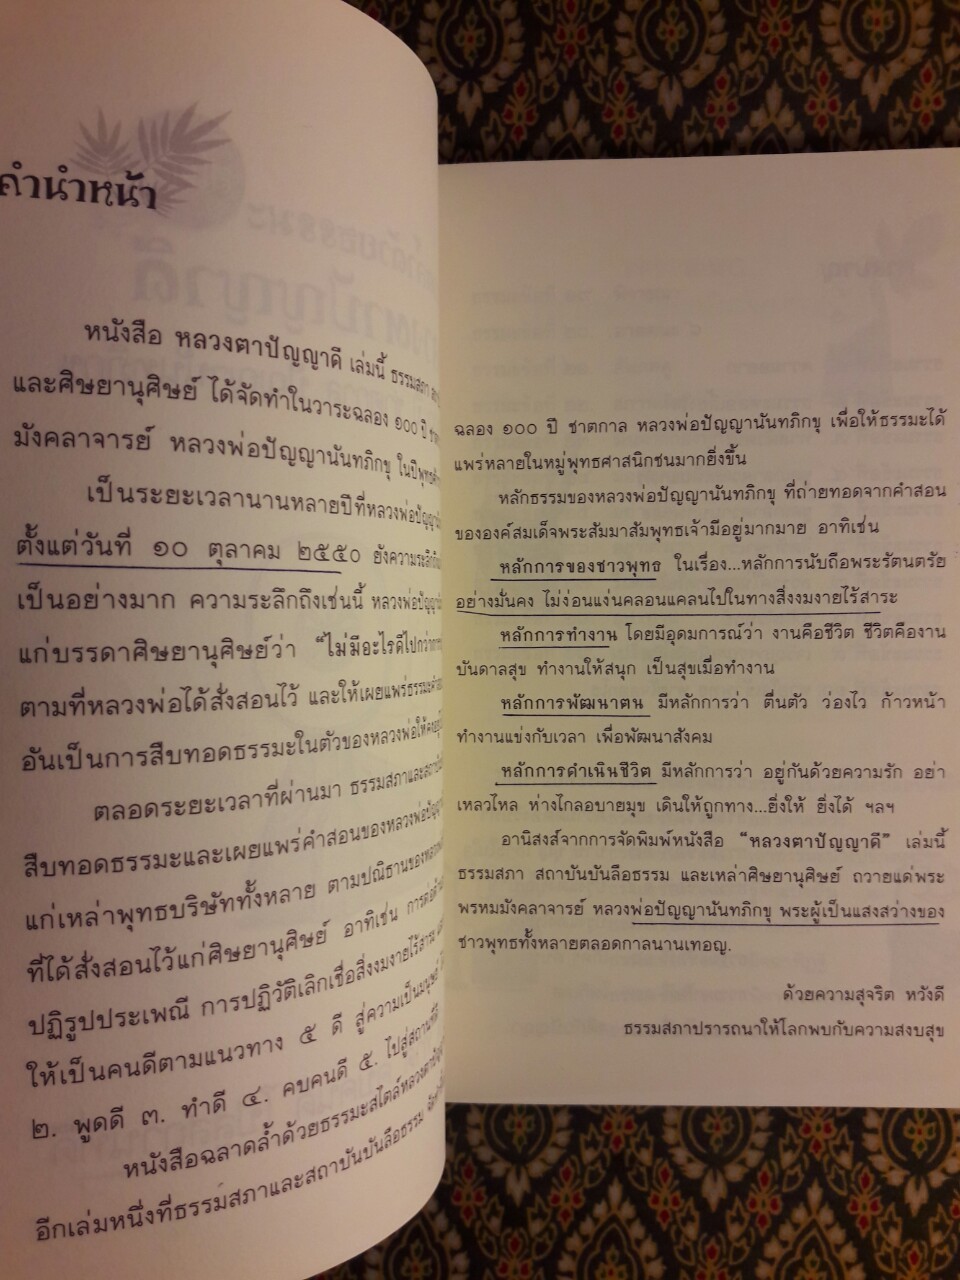 คำนำหน้า
หนังสือ หลวงตาปัญญาดี เล่มนี้ ธรรมสภา
และศิษยานุศิษย์ ได้จัดทำในวาระฉลอง ๑๐๐ ปี
มังคลาจารย์ หลวงพ่อปัญญานันทภิกขุ
เป็นระยะเวลานานหลายปีที่หลวงพ่อปัญญา
ตั้งแต่วันที่ ๑๐ ตุลาคม ๒๕๕๐ ยังความระลึกถึง
เป็นอย่างมาก ความระลึกถึงเช่นนี้
แก่บรรดาศิษยานุศิษย์ว่า "ไม่มีอะไรดีไปกว่าการ
ตามที่หลวงพ่อได้สั่งสอนไว้ และให้เผยแพร่ธรรมะ
อันเป็นการสืบทอดธรรมะในตัวของหลวงพ่อให้คงอยู่
ตลอดระยะเวลาที่ผ่านมา ธรรมสภาและสถาบัน
สืบทอดธรรมะและเผยแพร่คำสอนของหลวงพ่อปัญญา
แก่เหล่าพุทธบริษัททั้งหลาย ตามปณิธานของหลวงพ่อ
ที่ได้สั่งสอนไว้แก่ศิษยานุศิษย์ อาทิเช่น การต่อต้าน
ปฏิรูปประเพณี การปฏิวัติเลิกเชื่อสิ่งงมงายไร้สาระ
ให้เป็นคนดีตามแนวทาง ๕ ดี สู่ความเป็นมนุษย์
๒. พูดดี ๓. ทำดี ๔. คบคนดี ๕. ไปสู่สถานที่ดี
หนังสือฉลาดล้ำด้วยธรรมะสไตล์หลวงตาปัญญา
อีกเล่มหนึ่งที่ธรรมสภาและสถาบันบันลือธรรม
ฉลอง ๑๐๐ ปี ชาตกาล หลวงพ่อปัญญานันทภิกขุ เพื่อให้ธรรมะได้
แพร่หลายในหมู่พุทธศาสนิกชนมากยิ่งขึ้น
หลักธรรมของหลวงพ่อปัญญานันทภิกขุ ที่ถ่ายทอดจากคำสอน
ขององค์สมเด็จพระสัมมาสัมพุทธเจ้ามีอยู่มากมาย อาทิเช่น
หลักการของชาวพุทธ ในเรื่อง...หลักการนับถือพระรัตนตรัย
อย่างมั่นคง ไม่ง่อนแง่นคลอนแคลนไปในทางสิ่งงมงายไร้สาระ
หลักการทำงาน โดยมีอุดมการณ์ว่า งานคือชีวิต ชีวิตคืองาน
บันดาลสุข ทำงานให้สนุก เป็นสุขเมื่อทำงาน
หลักการพัฒนาตน มีหลักการว่า ตื่นตัว ว่องไว ก้าวหน้า
ทำงานแข่งกับเวลา เพื่อพัฒนาสังคม
หลักการดำเนินชีวิต มีหลักการว่า อยู่กันด้วยความรัก อย่า
เหลวไหล ห่างไกลอบายมุข เดินให้ถูกทาง...ยิ่งให้ ยิ่งได้ ฯลฯ
อานิสงส์จากการจัดพิมพ์หนังสือ "หลวงตาปัญญาดี" เล่มนี้
ธรรมสภา สถาบันบันลือธรรม และเหล่าศิษยานุศิษย์ ถวายแด่พระ
พรหมมังคลาจารย์ หลวงพ่อปัญญานันทภิกขุ พระผู้เป็นแสงสว่างของ
ชาวพุทธทั้งหลายตลอดกาลนานเทอญ.
ด้วยความสุจริต หวังดี
ธรรมสภาปรารถนาให้โลกพบกับความสงบสุข